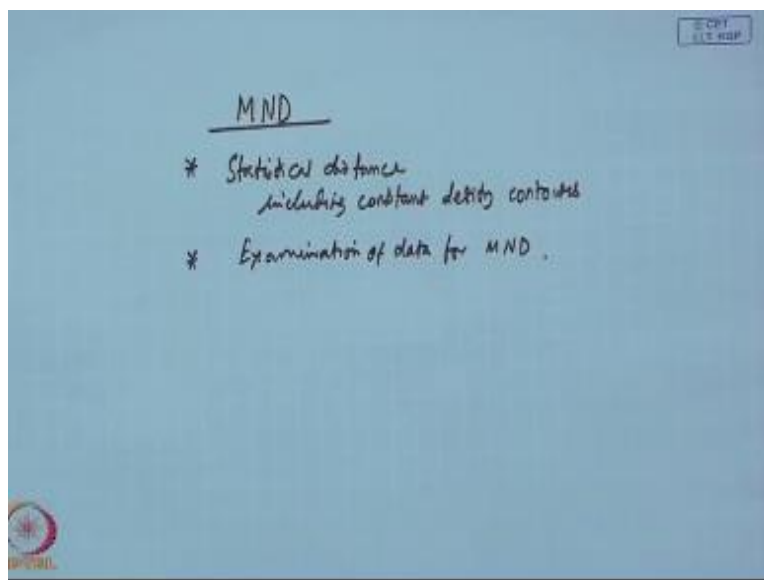 © CET
I.I.T. KGP
MND
* Statistical distance
including constant density contours
* Examination of data for MND.
NPTEL